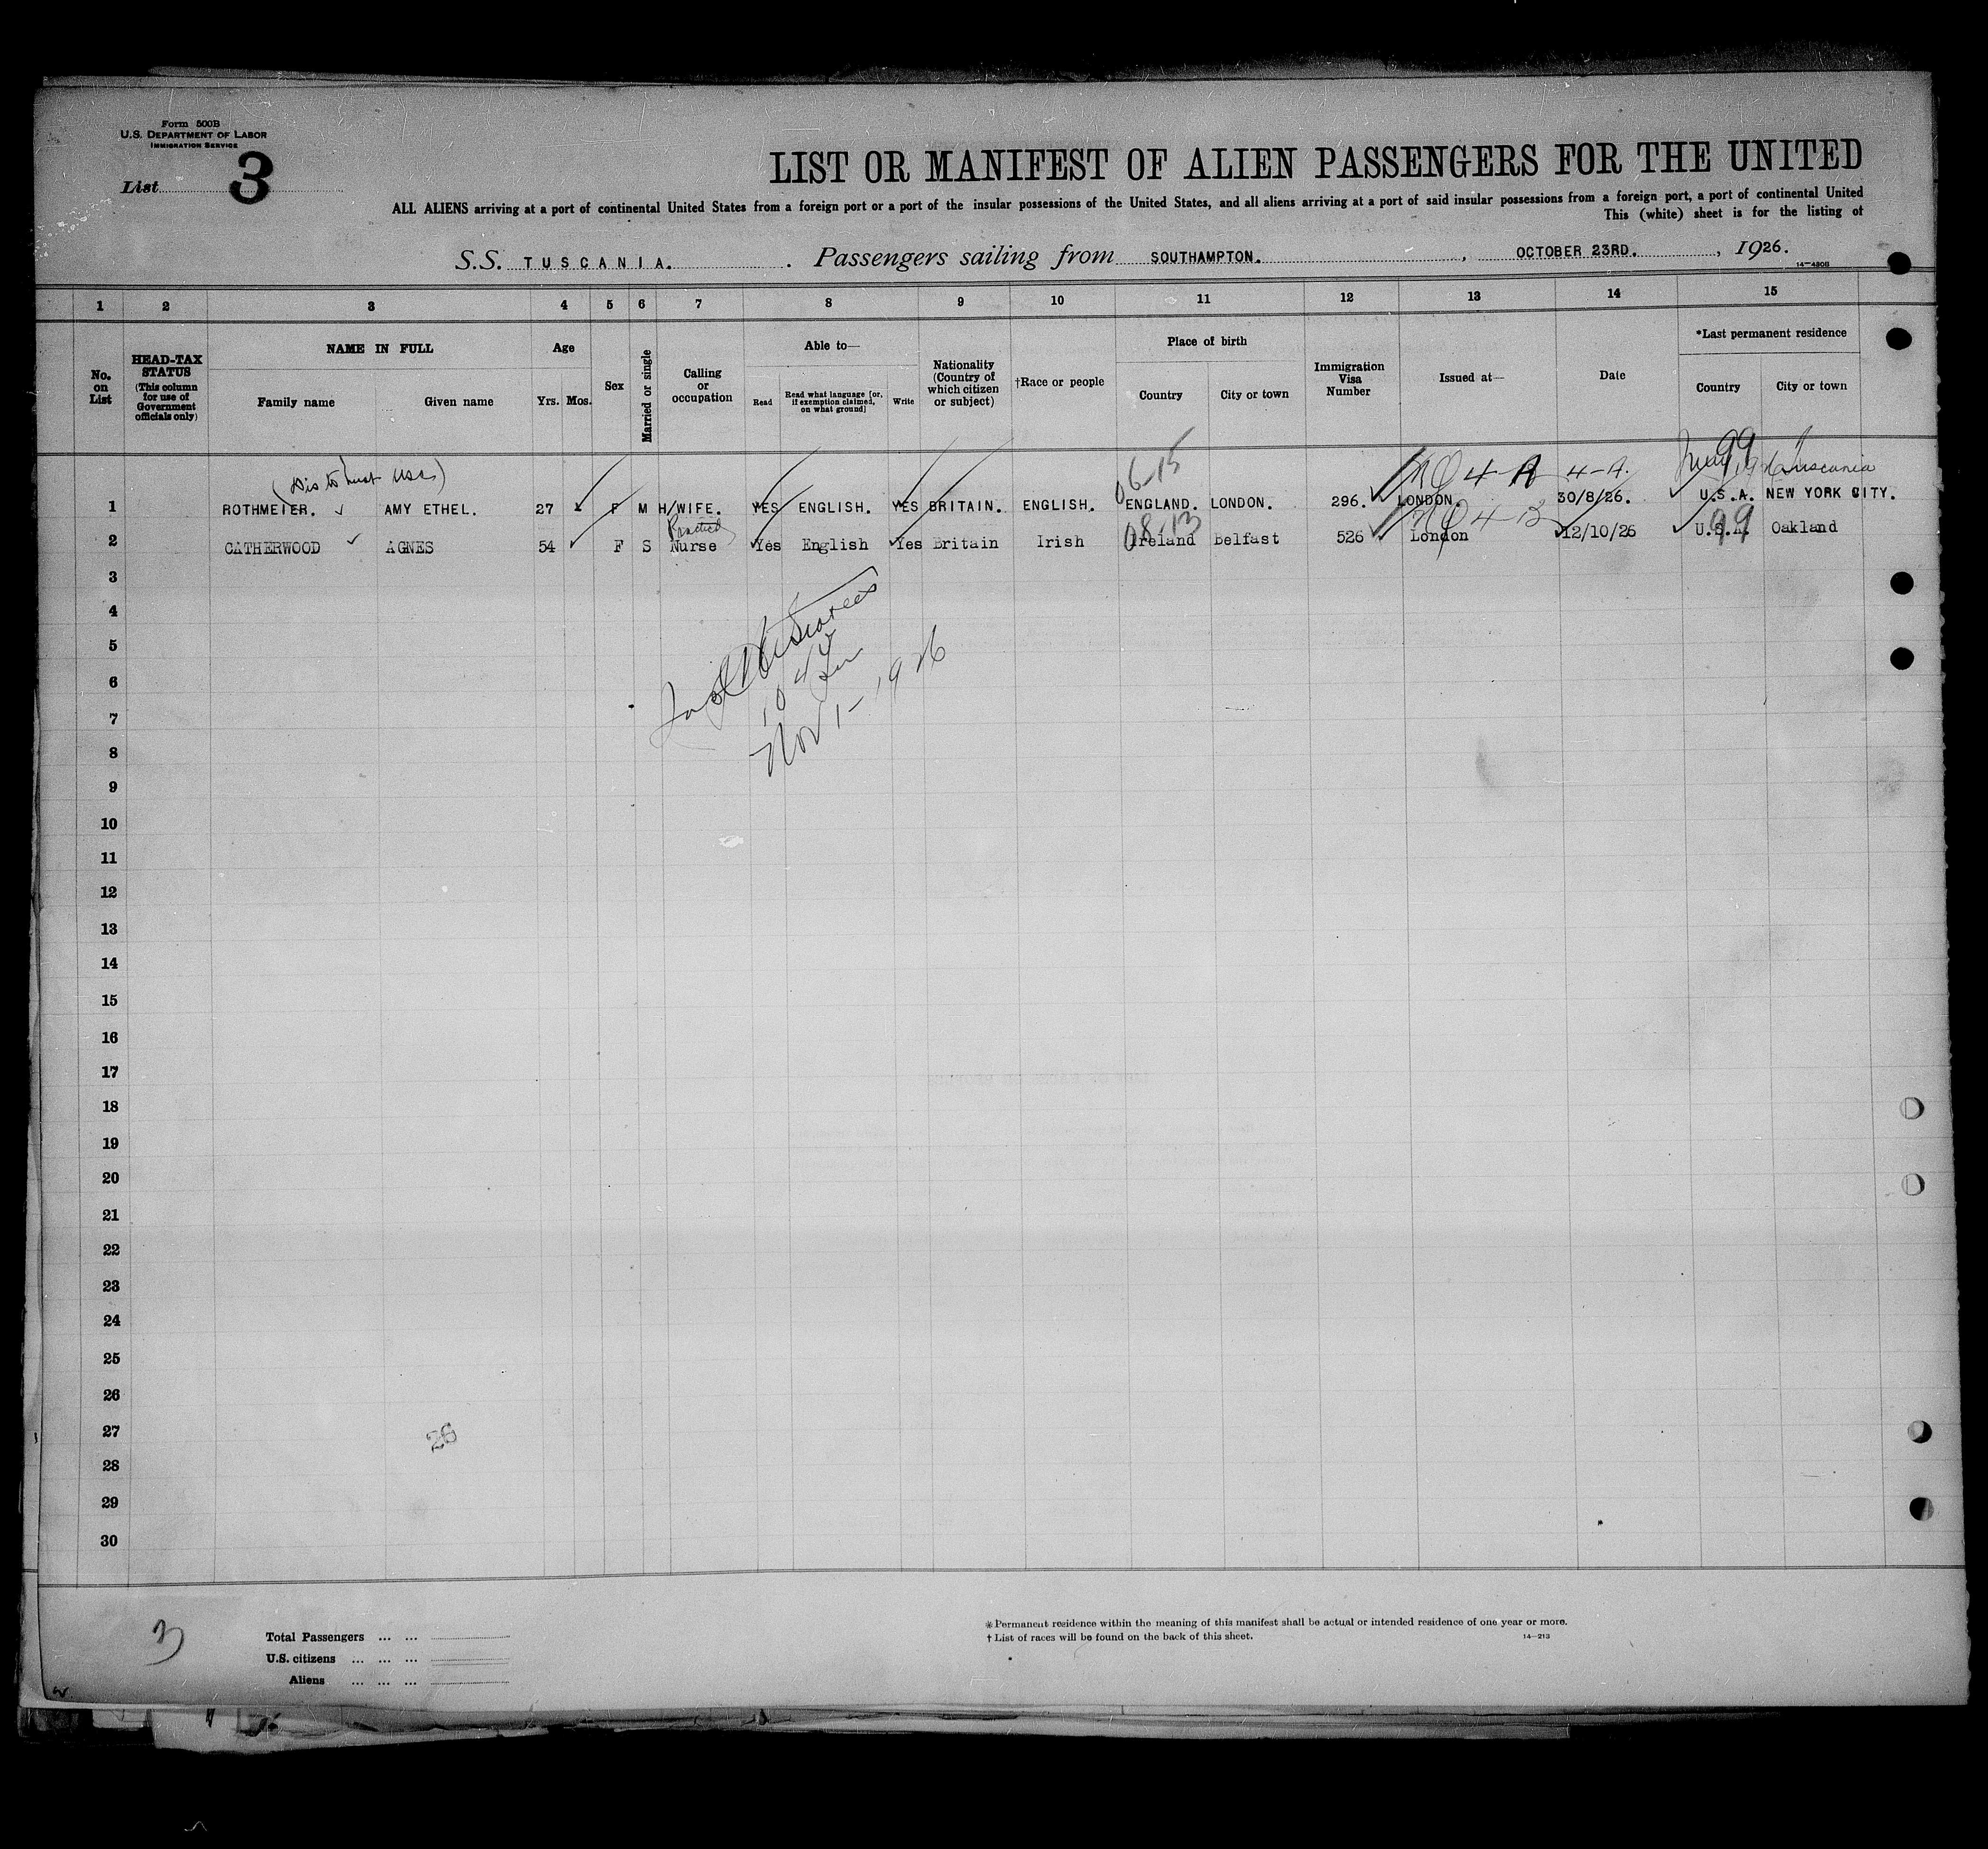 Form 500B
U.S. DEPARTMENT OF LABOR
IMMIGRATION SERVICE
List 3
LIST OR MANIFEST OF ALIEN PASSENGERS FOR THE UNITED
ALL ALIENS arriving at a port of continental United States from a foreign port or a port of the insular possessions of the United States, and all aliens arriving at a port of said insular possessions from a foreign port, a port of continental United
This (white) sheet is for the listing of
S.S. TUSCANIA. Passengers sailing from SOUTHAMPTON. , OCTOBER 23RD. , 1926.
14-430B
1 2 3 4 5 6 7 8 9 10 11 12 13 14 15
No. on List
HEAD-TAX STATUS
(This column for use of Government officials only)
NAME IN FULL
Family name Given name
Age
Yrs. Mos.
Sex
Married or single
Calling or occupation
Able to—
Read
Read what language [or, if exemption claimed, on what ground]
Write
Nationality (Country of which citizen or subject)
†Race or people
Place of birth
Country City or town
Immigration Visa Number
Issued at—
Date
*Last permanent residence
Country City or town
06-15 NQ 4-A 4-A. 99 Tuscania
1 ROTHMEIER. AMY ETHEL. 27 F M H/WIFE. YES ENGLISH. YES BRITAIN. ENGLISH. ENGLAND. LONDON. 296. LONDON 30/8/26. U.S.A. NEW YORK CITY.
Practical 08-13 NQ 4-B 99
2 CATHERWOOD AGNES 54 F S Nurse Yes English Yes Britain Irish Ireland Belfast 526 London 12/10/26 U.S.A. Oakland
3
4
5
6
7
Nov 1-1926
8
9
10
11
12
13
14
15
16
17
18
19
20
21
22
23
24
25
26
27
26
28
29
30
3
Total Passengers ... ...
U.S. citizens ... ... ...
Aliens ... ... ...
* Permanent residence within the meaning of this manifest shall be actual or intended residence of one year or more.
† List of races will be found on the back of this sheet.
14-213